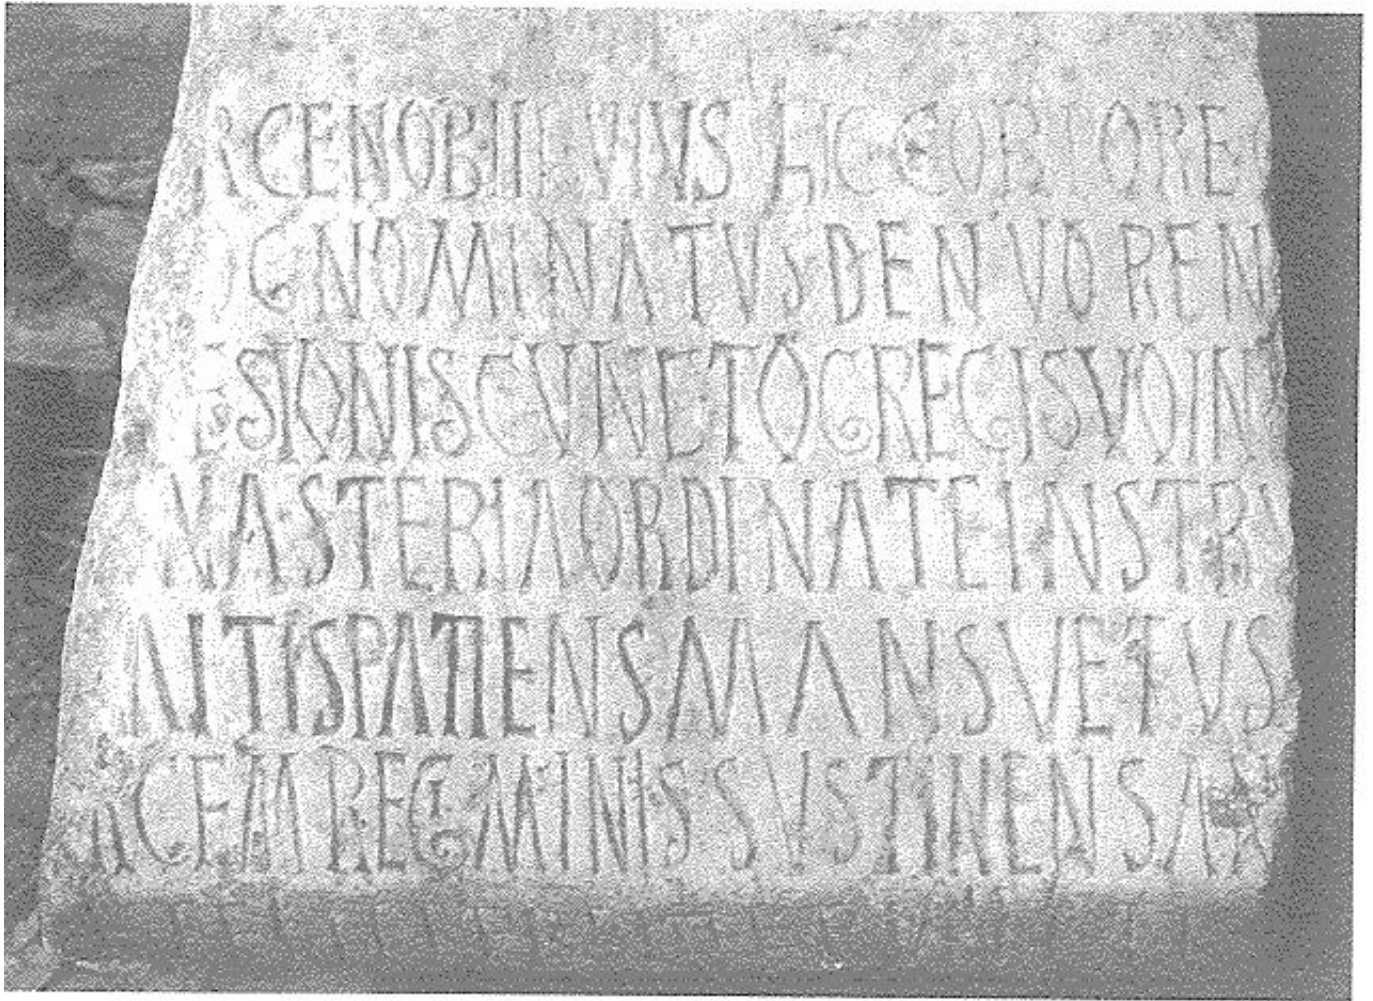 RCENOBII HVIVS HIC CORPORE
GNOMINATVS DENVO REN
ESIONIS CVNCTO GREGI SVO IN
NASTERIA ORDINATE INSTRV
MITIS PATIENS MANSVETVS
RCEM REGIMINIS SVSTINENS AN